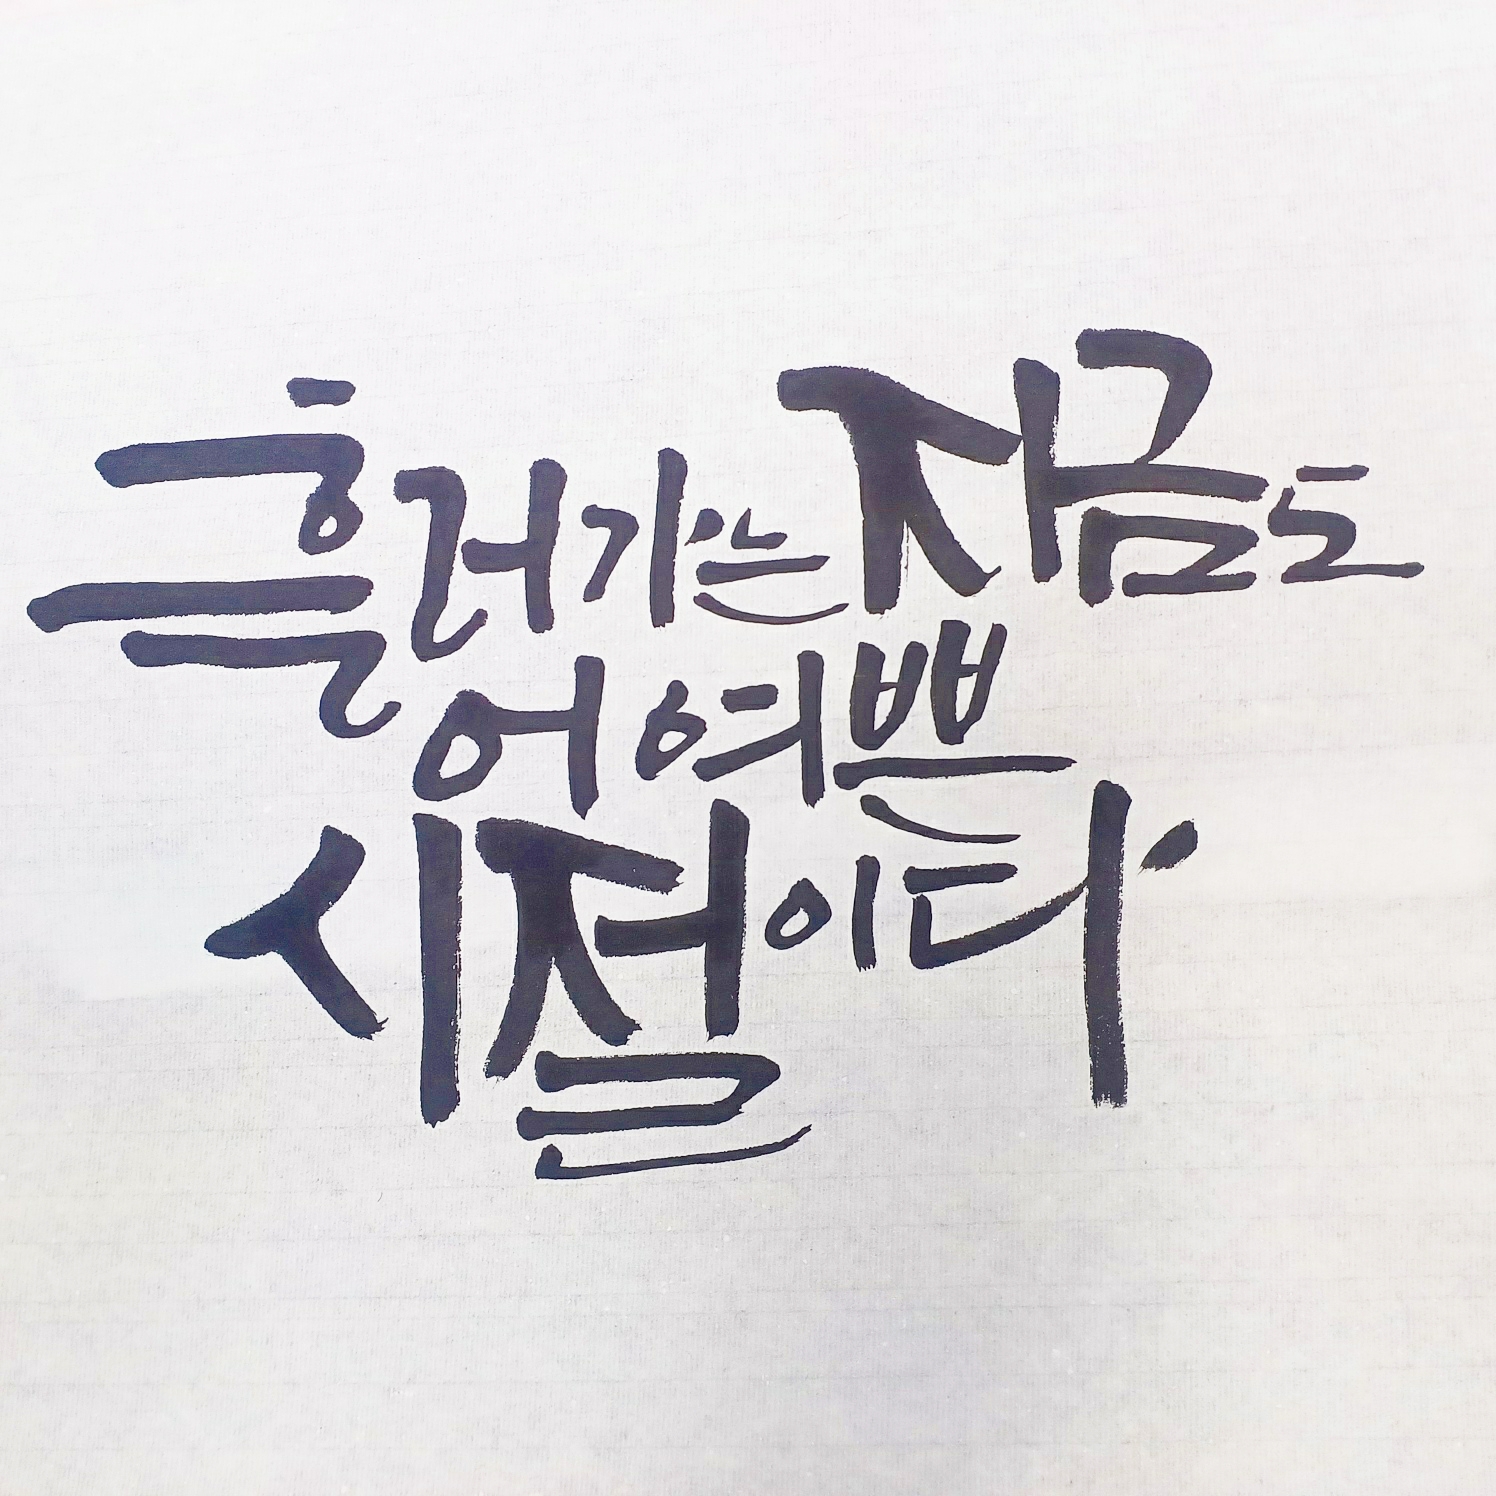 흘러가는 지금도
어여쁜
시절이다